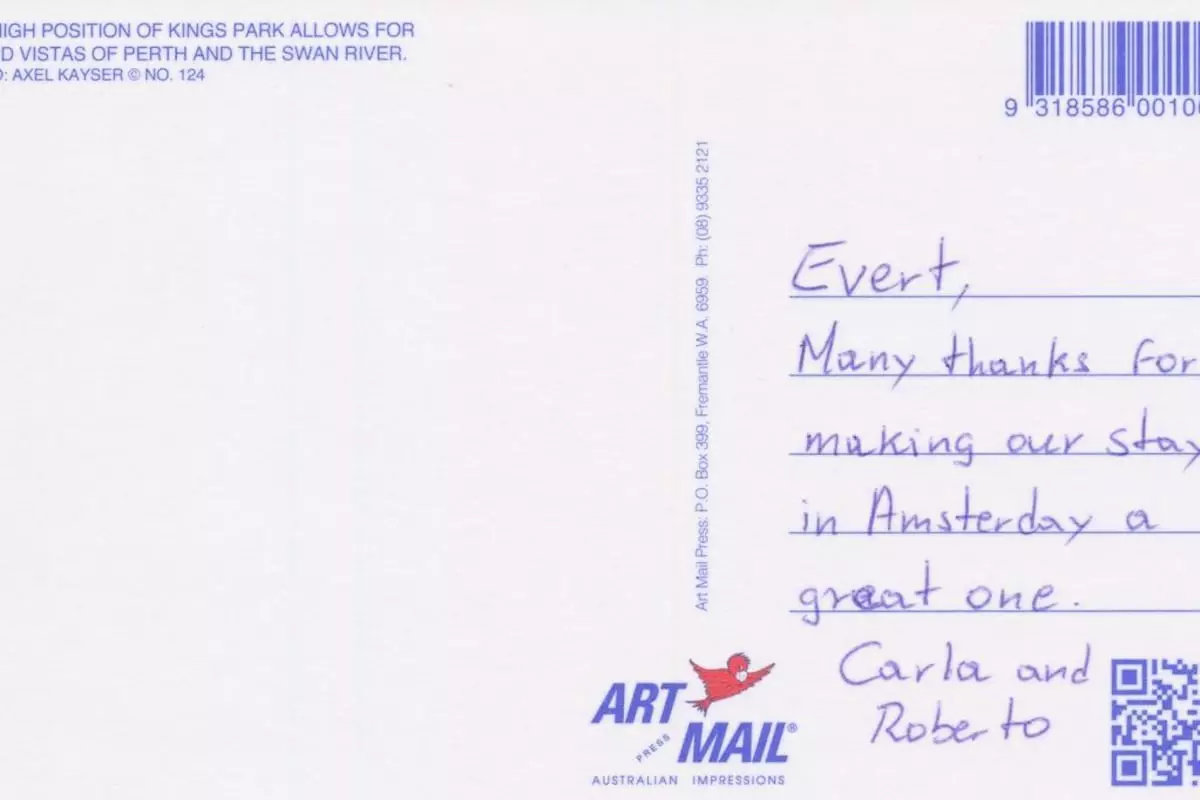 HIGH POSITION OF KINGS PARK ALLOWS FOR
D VISTAS OF PERTH AND THE SWAN RIVER.
O: AXEL KAYSER © NO. 124
9 318586 00106
Art Mail Press: P.O. Box 399, Fremantle W.A. 6959 Ph: (08) 9335 2121
Evert,
Many thanks for
making our stay
in Amsterday a
great one.
Carla and
Roberto
ART
PRESS
MAIL®
AUSTRALIAN IMPRESSIONS